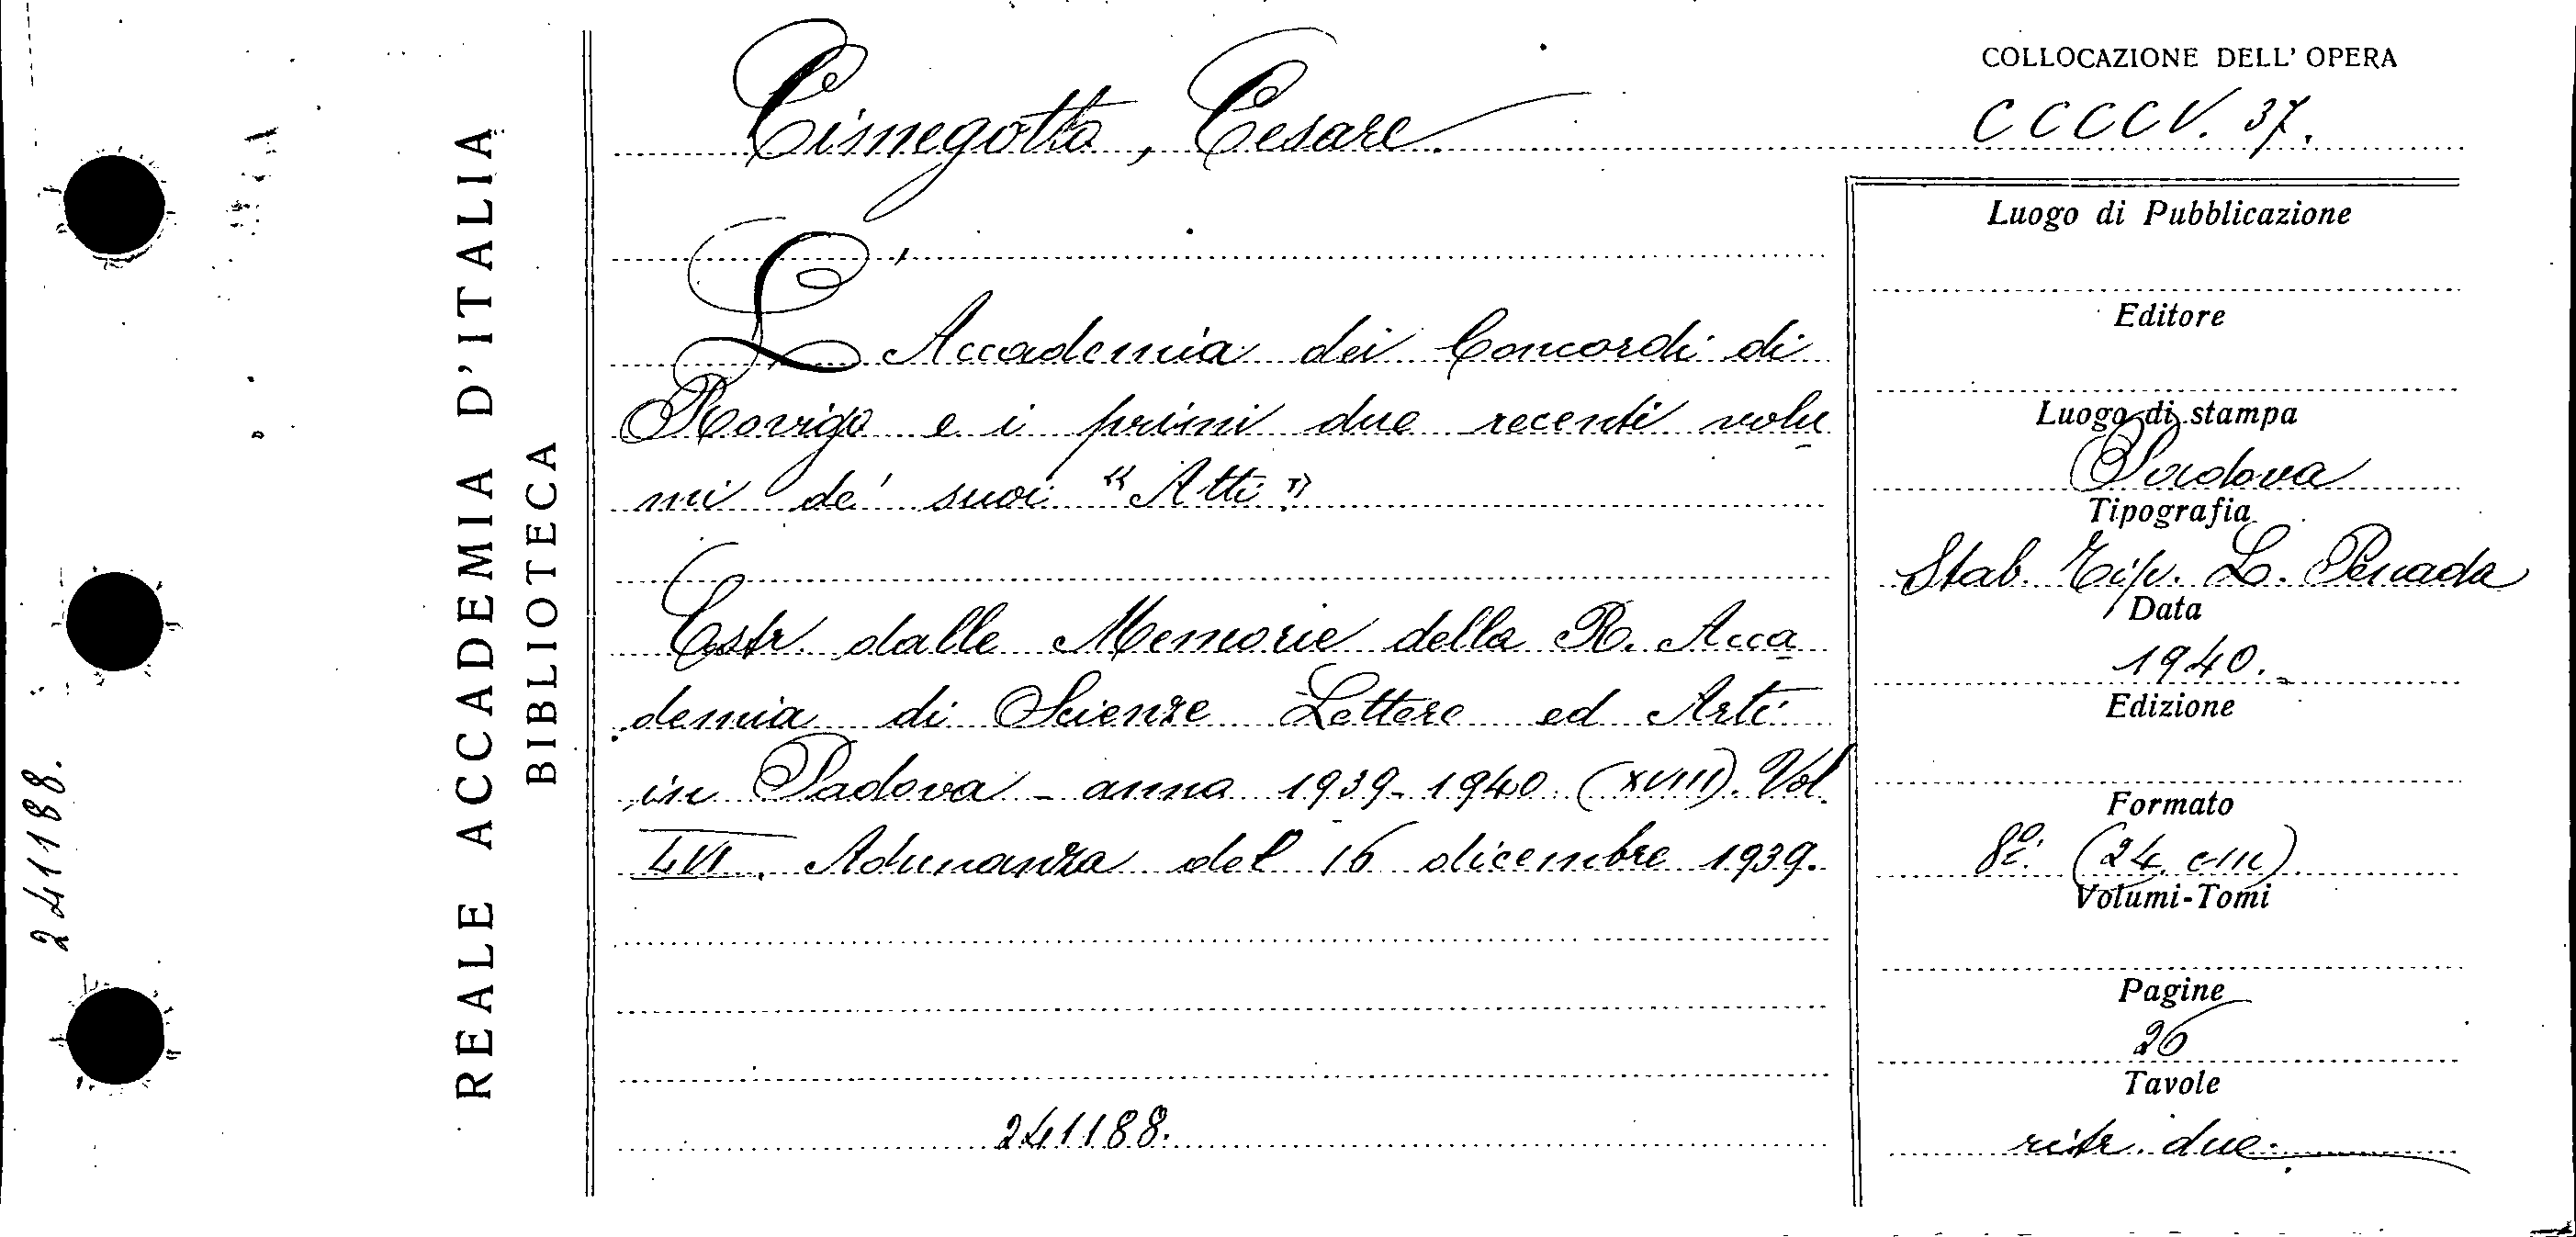 COLLOCAZIONE DELL' OPERA
Cimegotto, Cesare.
CCCCV. 37.
L'Accademia dei Concordi di
Rovigo e i primi due recenti volu
mi de' suoi "Atti"
Estr. dalle Memorie della R. Acca
demia di Scienze Lettere ed Arti
in Padova - anna 1939-1940 (XVIII). Vol.
LVI. Adunanza del 16 dicembre 1939.
241188.
Luogo di Pubblicazione
Editore
Luogo di stampa
Padova
Tipografia
Stab. Tip. L. Penada
Data
1940.
Edizione
Formato
8º. (24 cm)
Volumi-Tomi
Pagine
26
Tavole
ritr. due.
REALE ACCADEMIA D'ITALIA
BIBLIOTECA
241188.